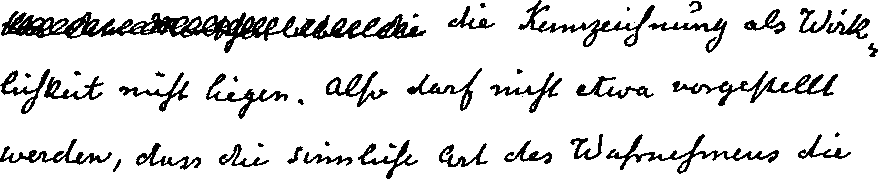 die Kennzeichnung als Wirk-
lichkeit nicht liegen. Also darf nicht etwa vorgestellt
werden, dass die sinnliche Art des Wahrnehmens die